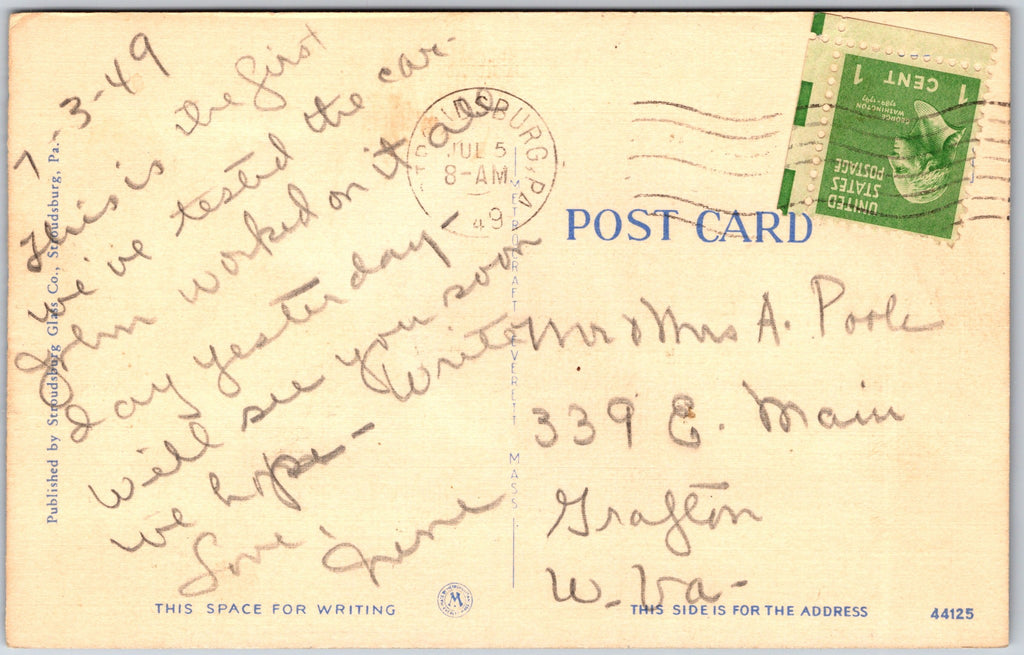 7-3-49
This is the first
we've tested the car-
John worked on it all
day yesterday-
will see you soon
we hope- Write
Love,
Irene
Published by Stroudsburg Glass Co., Stroudsburg, Pa.
STROUDSBURG, PA.
JUL 5
8-AM
49
METROCRAFT EVERETT MASS.
POST CARD
1 CENT 1
GEORGE WASHINGTON
1789-1797
UNITED STATES POSTAGE
Mr & Mrs A. Poole
339 E. Main
Grafton
W. Va-
THIS SPACE FOR WRITING
W
THIS SIDE IS FOR THE ADDRESS
44125